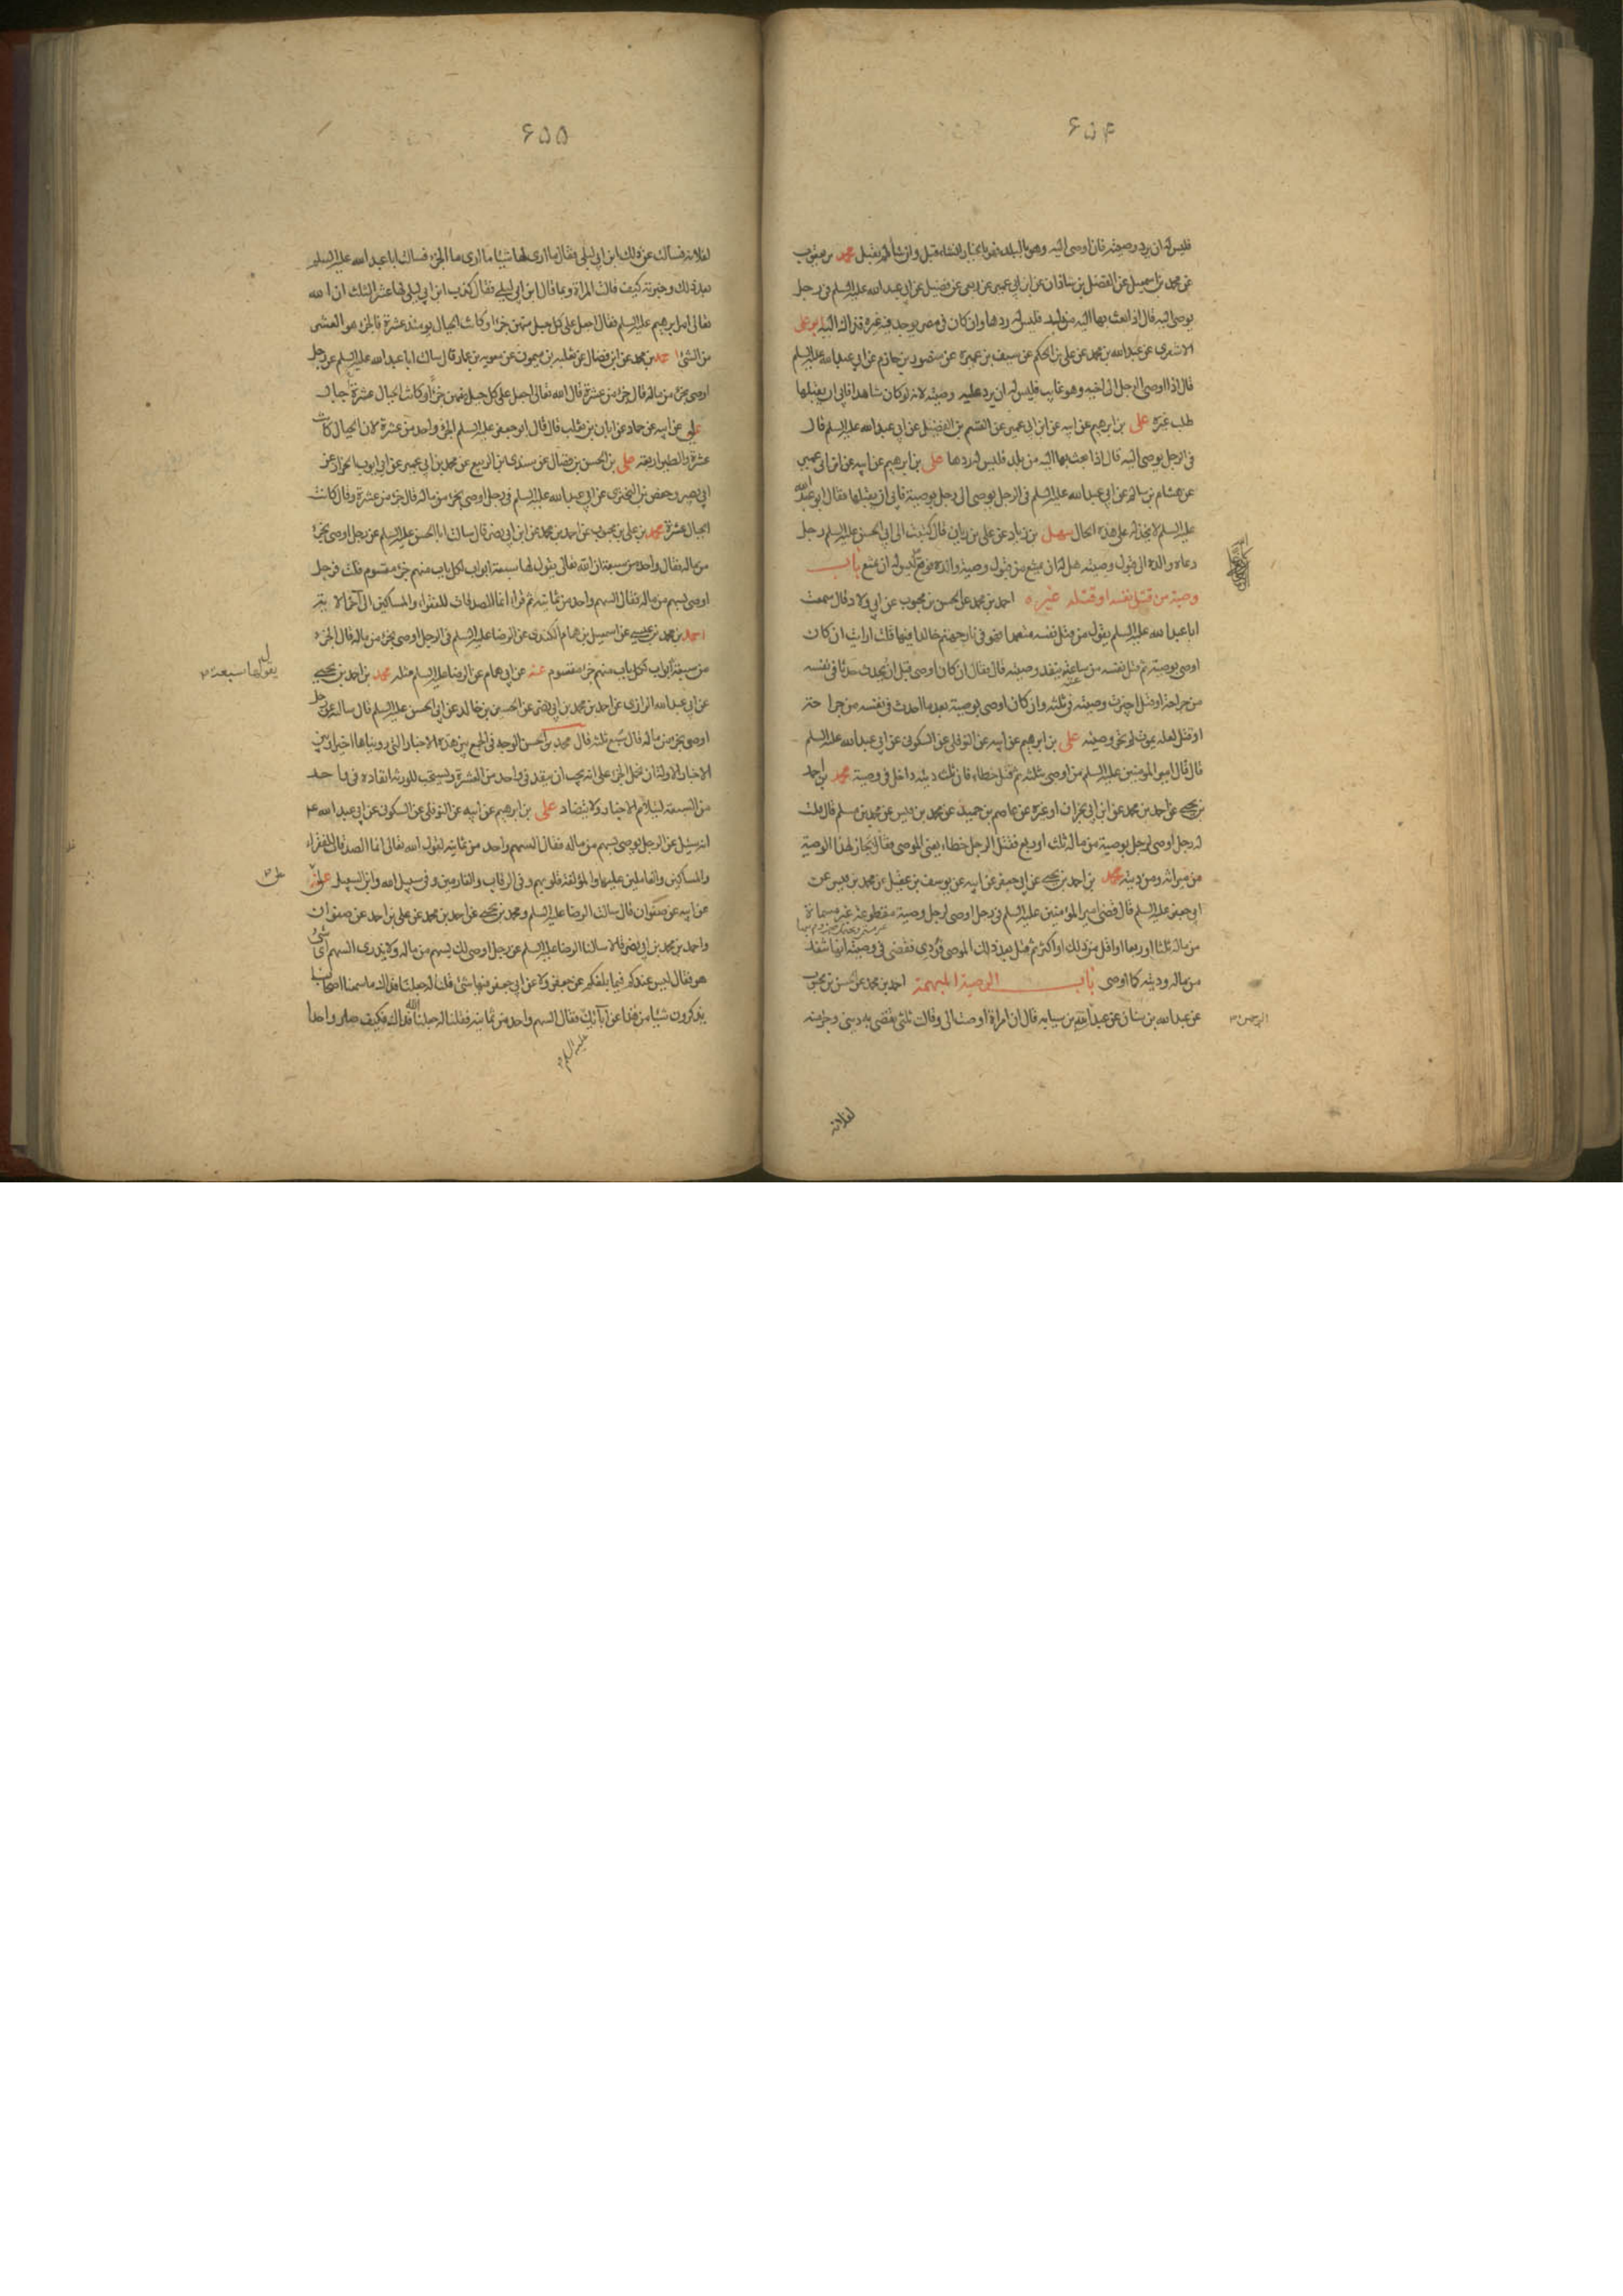 ۶۵۴
فليس له ان يرد وصيته فان اوصى اليه وهو بالبلد فهو بالخيار ان شاء قبل وان شاء لم يقبل محمد بن يعقوب
عن محمد بن اسمعيل عن الفضل بن شاذان عن ابن ابي عمير عن ربعي عن فضيل عن ابي عبدالله عليه السلم في رجل
يوصى اليه قال اذا بعث بها اليه من بلد فليس له ردها وان كان في مصر يوجد فيه غيره فذاك اليه ابو علي
الاشعرى عن عبدالله بن محمد عن علي بن الحكم عن سيف بن عميرة عن منصور بن حازم عن ابي عبدالله عليه السلم
قال اذا اوصى الرجل الى اخيه وهو غايب فليس له ان يرد عليه وصيته لانه لو كان شاهدا فابى ان يقبلها
طلب غيره علي بن ابرهيم عن ابيه عن ابن ابي عمير عن القسم بن الفضيل عن ابي عبدالله عليه السلم قال
في الرجل يوصى اليه قال اذا بعث بها اليه من بلد فليس له ردها علي بن ابرهيم عن ابيه عن ابن ابي عمير
عن هشام بن سالم عن ابي عبدالله عليه السلم في الرجل يوصى الى رجل بوصية فابى ان يقبلها فقال ابو عبدالله
عليه السلم لا يخذله على هذه الحال سهل بن زياد عن علي بن ريان قال كتبت الى ابي الحسن عليه السلم رجل
دعاه والده الى قبول وصيته هل له ان يمتنع من قبول وصية والده فوقع ليس له ان يمتنع باب
وصية من قتل نفسه او قتله غيره احمد بن محمد عن الحسن بن محبوب عن ابي ولاد قال سمعت
ابا عبدالله عليه السلم يقول من قتل نفسه متعمدا فهو في نار جهنم خالدا فيها قلت ارايت ان كان
اوصى بوصية ثم قتل نفسه من ساعته ينفد وصيته قال فقال ان كان اوصى قبل ان يحدث حدثا في نفسه
من جراحة او قتل اجيزت وصيته في ثلثه وان كان اوصى بوصية بعد ما احدث في نفسه من جراحة
او قتل لعله يموت لم تجز وصيته علي بن ابرهيم عن ابيه عن النوفلي عن السكوني عن ابي عبدالله عليه السلم
قال قال امير المومنين عليه السلم من اوصى بثلثه ثم قتل خطاء فان ثلث ديته داخل في وصيته محمد بن احمد
بن يحيى عن احمد بن محمد عن ابن ابي نجران او غيره عن عاصم بن حميد عن محمد بن قيس عن محمد بن مسلم قال قلت
له رجل اوصى لرجل بوصية من ماله ثلث او ربع فقتل الرجل خطاء يعنى الموصى فقال تجاز لهذا الوصية
من ميراثه ومن ديته محمد بن احمد بن يحيى عن ابي جعفر عن ابيه عن يوسف بن عقيل عن محمد بن قيس عن
ابي جعفر عليه السلم قال قضى امير المؤمنين عليه السلم في رجل اوصى لرجل وصية مقطوعة غير مسماة
من ماله ثلثا او ربعا او اقل من ذلك او اكثر ثم قتل بعد ذلك الموصى فودى فقضى في وصيته انها تنفذ
من ماله وديته كما اوصى باب الوصية المبهمة احمد بن محمد عن الحسن بن محبوب
عن عبدالله بن سنان عن عبدالله بن سيابه قال ان امراة اوصت الي وقالت ثلثي يقضى به ديني وجزء منه
الرحمن
لفلانه
۶۵۵
لفلانه فسالت عن ذلك ابن ابي ليلى فقال ما ارى لها شيئا ما ادرى ما الجزء فسالت ابا عبدالله عليه السلم
بعد ذلك وخبرته كيف قالت المراة وبما قال ابن ابي ليلى فقال كذب ابن ابي ليلى لها عشر الثلث ان الله
تعالى امر ابرهيم عليه السلم فقال اجعل على كل جبل منهن جزءا وكانت الجبال يومئذ عشرة فالجزء هو العشر
من الشئ احمد بن محمد عن ابن فضال عن ثعلبه بن ميمون عن معويه بن عمار قال سالت ابا عبدالله عليه السلم عن رجل
اوصى بجزء من ماله قال جزء من عشرة قال الله تعالى اجعل على كل جبل منهن جزءا وكانت الجبال عشرة جبال
علي عن ابيه عن حماد عن ابان بن تغلب قال قال ابو جعفر عليه السلم الجزء واحد من عشرة لان الجبال كانت
عشرة والطير اربعه علي بن الحسن بن فضال عن سندى بن الربيع عن محمد بن ابي عمير عن ابي ايوب الخزاز عن
ابي بصير وحفص بن البخترى عن ابي عبدالله عليه السلم في رجل اوصى بجزء من ماله قال جزء من عشرة وقال كانت
الجبال عشرة محمد بن علي بن محبوب عن احمد بن محمد عن ابن ابي نصر قال سالت ابا الحسن عليه السلم عن رجل اوصى بجزء
من ماله فقال واحد من سبعة ان الله تعالى يقول لها سبعة ابواب لكل باب منهم جزء مقسوم قلت فرجل
اوصى بسهم من ماله فقال السهم واحد من ثمانية ثم قراء انما الصدقات للفقراء والمساكين الى آخر الاية
احمد بن محمد بن عيسى عن اسمعيل بن همام الكندى عن الرضا عليه السلم في الرجل اوصى بجزء من ماله قال الجزء
من سبعة ابواب لكل باب منهم جزء مقسوم عنه عن ابي همام عن الرضا عليه السلم مثله محمد بن احمد بن يحيى
يقول لها سبعة
عن ابي عبدالله الرازى عن احمد بن محمد بن ابي نصر عن الحسين بن خالد عن ابي الحسن عليه السلم قال سالته عن رجل
اوصى بجزء من ماله قال سبع ثلثه قال محمد بن الحسن الوجه في الجمع بين هذه الاخبار التي رويناها اخيرا وبين
الاخبار الاولة ان نحمل الجزء على انه يجب ان ينفد في واحد من العشرة ويستحب للورثة انفاده في واحد
من السبعة لتتلاءم الاخبار ولا تتضاد علي بن ابرهيم عن ابيه عن النوفلي عن السكوني عن ابي عبدالله ع
انه سئل عن الرجل يوصى بسهم من ماله فقال السهم واحد من ثمانية لقول الله تعالى انما الصدقات للفقراء
والمساكين والعاملين عليها والمؤلفة قلوبهم وفي الرقاب والغارمين وفي سبيل الله وابن السبيل علي
عن ابيه عن صفوان قال سالت الرضا عليه السلم ومحمد بن يحيى عن احمد بن محمد عن علي بن احمد عن صفوان
واحمد بن محمد بن ابي نصر قالا سالنا الرضا عليه السلم عن رجل اوصى لك بسهم من ماله ولا يدرى السهم اي شئ
هو فقال ليس عندكم فيما بلغكم عن جعفر ولا عن ابي جعفر فيها شئ قلنا له جعلنا فداك ما سمعنا اصحابنا
يذكرون شيئا من هذا عن آبائك فقال السهم واحد من ثمانية فقلنا له جعلنا الله فداك فكيف صار واحدا
عليه السلم